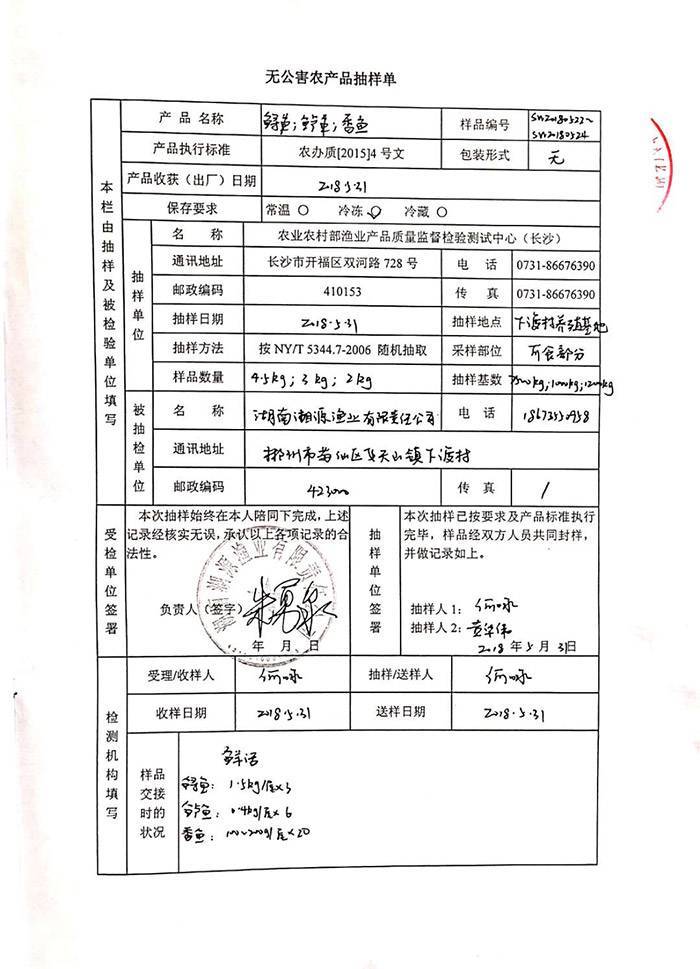 无公害农产品抽样单
本栏由抽样及被检验单位填写
产品名称 鲟鱼；鲈鱼；香鱼 样品编号 SW20180522~
SW20180524
产品执行标准 农办质[2015]4 号文 包装形式 无
产品收获（出厂）日期 2018.5.31
保存要求 常温 ○ 冷冻 ○ 冷藏 ○
抽样单位
名 称 农业农村部渔业产品质量监督检验测试中心（长沙）
通讯地址 长沙市开福区双河路 728 号 电 话 0731-86676390
邮政编码 410153 传 真 0731-86676390
抽样日期 2018.5.31 抽样地点 下渡村养殖基地
抽样方法 按 NY/T 5344.7-2006 随机抽取 采样部位 可食部分
样品数量 4.5kg；3kg；2kg 抽样基数
被抽检单位
名 称 湖南湘源渔业有限责任公司 电 话
通讯地址 郴州市苏仙区飞天山镇下渡村
邮政编码 423000 传 真 /
受检单位签署
本次抽样始终在本人陪同下完成，上述
记录经核实无误，承认以上各项记录的合
法性。
负责人（签字）
年 月 日
抽样单位签署
本次抽样已按要求及产品标准执行
完毕，样品经双方人员共同封样，
并做记录如上。
抽样人 1： 何咏
抽样人 2： 黄华伟
2018 年 5 月 31日
检测机构填写
受理/收样人 何咏 抽样/送样人 何咏
收样日期 2018.5.31 送样日期 2018.5.31
样品交接时的状况
鲜活
鲟鱼： 1.5kg/尾×3
鲈鱼： 0.4kg/尾×6
香鱼： 100~200g/尾×20